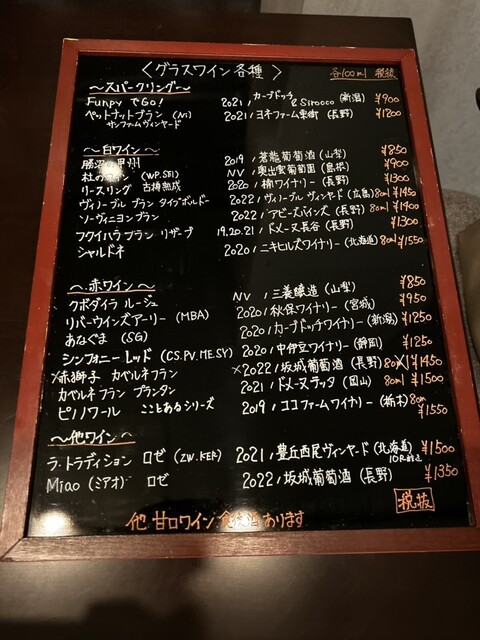 〈グラスワイン各種〉 各100ml 税抜
〜スパークリング〜
Funpy でGo! 2021, カーブドッチ & Sirocco (新潟) ¥900
ペットナットブラン 2021, ヨネファーム東御 (長野) ¥1200
サンファームヴィンヤード
〜白ワイン〜
勝沼の甲州 2019, 蒼龍葡萄酒 (山梨) ¥850
杜の (WP.SEI) NV, 奥出雲葡萄園 (島根) ¥900
リースリング 古樽熟成 2020, 楠ワイナリー (長野) ¥1300
ヴィノーブル ブラン タイプボルドー 2022, ヴィノーブル ヴィンヤード (広島) 80ml ¥1450
ソーヴィニヨンブラン 2022, アビーズバインズ (長野) 80ml ¥1400
フクイハラブラン リザーブ 19.20.21, ドメーヌ長谷 (長野) ¥1300
シャルドネ 2020, ニキヒルズワイナリー (北海道) 80ml ¥1550
〜赤ワイン〜
クボダイラ ルージュ NV, 三養醸造 (山梨) ¥850
リバーウインズアーリー (MBA) 2020, 秋保ワイナリー (宮城) ¥950
あなぐま (SG) 2020, カーブドッチワイナリー (新潟) ¥1250
シンフォニー レッド (CS.PV.ME.SY) 2020, 中伊豆ワイナリー (静岡) ¥1250
×赤獅子 カベルネフラン ×2022, 坂城葡萄酒 (長野) 80ml ¥1450
カベルネフラン プランタン 2021, ドメーヌテッタ (岡山) ¥1500
ピノノワール こことあるシリーズ 2019, ココファームワイナリー (栃木) 80ml ¥1550
〜他ワイン〜
ラ・トラディション ロゼ (ZW.KER) 2021, 豊丘西尾ヴィンヤード (北海道) ¥1500
Miao (ミアオ) ロゼ 2022, 坂城葡萄酒 (長野) ¥1350
税抜
他 甘口ワイン 食後酒 あります